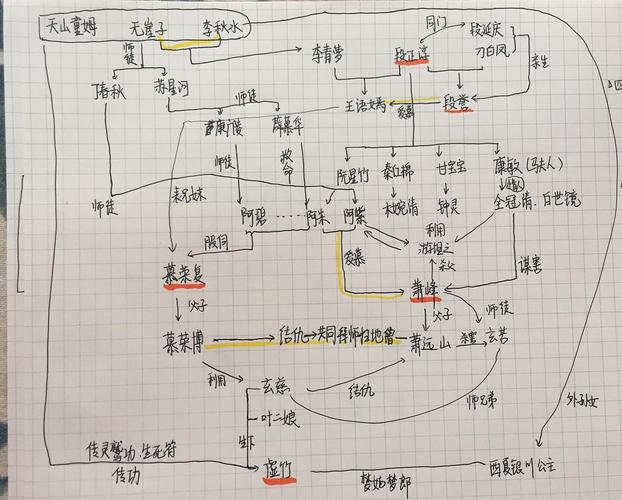 天山童姆 无崖子 李秋水
同门
段延庆
刀白凤
师徒
李青萝
段正淳
亲生
丁春秋
苏星河
师徒
王语嫣
爱慕
段誉
康广陵
薛慕华
师徒
救命
阮星竹
秦红棉
甘宝宝
康敏(马夫人)
表兄妹
师徒
木婉清
钟灵
全冠清、白世镜
阿碧
阿朱
阿紫
利用
游坦之
服伺
爱慕
杀父
谋害
慕荣复
萧峰
父子
父子
师徒
慕荣博
结仇→共同拜师扫地僧
萧远山
杀害
玄苦
利用
玄慈
结仇
师兄弟
外孙女
叶二娘
生下
传灵鹫功、生死符
传功
虚竹
梦姑梦郎
西夏银川公主